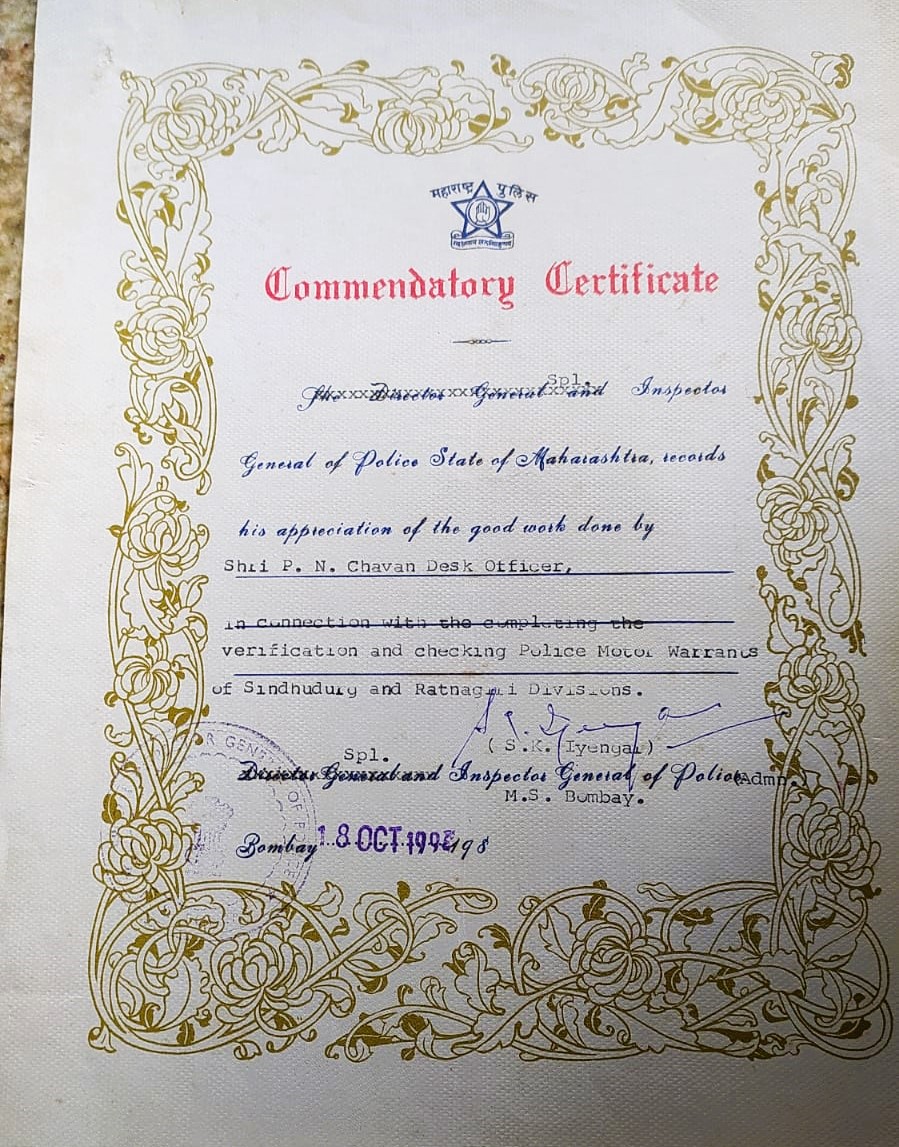 महाराष्ट्र पुलिस
Commendatory Certificate
Spl.
The Director General and Inspector
General of Police State of Maharashtra, records
his appreciation of the good work done by
Shri P. N. Chavan Desk Officer,
in connection with the completing the
verification and checking Police Motor Warrants
of Sindhudurg and Ratnagiri Divisions.
( S.K. Iyengar )
Spl.
Director General and Inspector General of Police (Admn.
M.S. Bombay.
Bombay 18 OCT 199 198